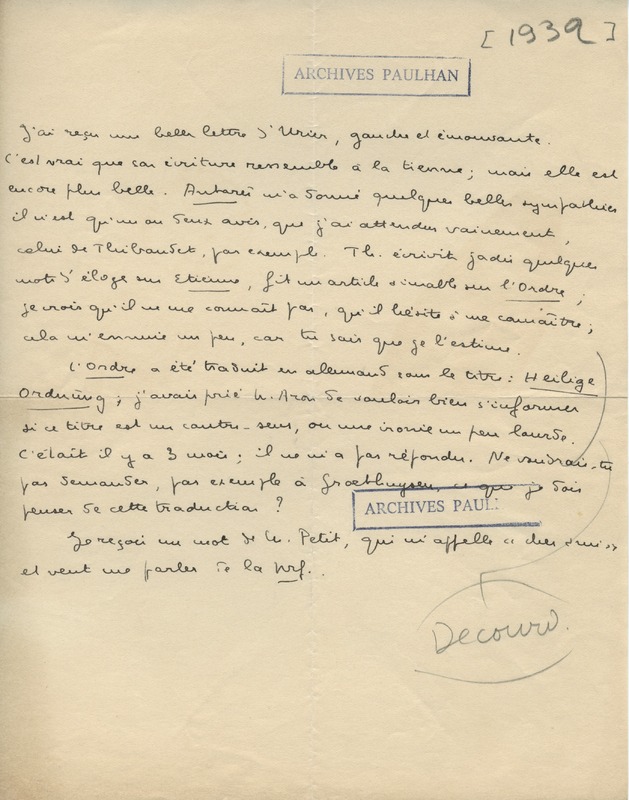 [1932]
ARCHIVES PAULHAN
J'ai reçu une belle lettre d' , gauche et émouvante.
C'est vrai que son écriture ressemble à la tienne ; mais elle est
encore plus belle. Antarès m'a donné quelques belles sympathies
il n'est qu'un ou deux avis, que j'ai attendus vainement,
celui de Thibaudet, par exemple. Th. écrivit jadis quelques
mots d'éloge sur Etienne, fit un article aimable sur l'Ordre ;
je crois qu'il ne me connaît pas, qu'il hésite à me connaître ;
cela m'ennuie un peu, car tu sais que je l'estime.
L'Ordre a été traduit en allemand sous le titre : Heilige
Ordnung ; j'avais prié M. Aron de vouloir bien s'informer
si ce titre est un contre-sens, ou une ironie un peu lourde.
C'était il y a 3 mois ; il ne m'a pas répondu. Ne voudrais-tu
pas demander, par exemple à Groethuysen, ce que je dois
penser de cette traduction ?
ARCHIVES PAUL
Je reçois un mot de M. Petit, qui m'appelle « cher ami »
et veut me parler de la nrf.
Decourd.